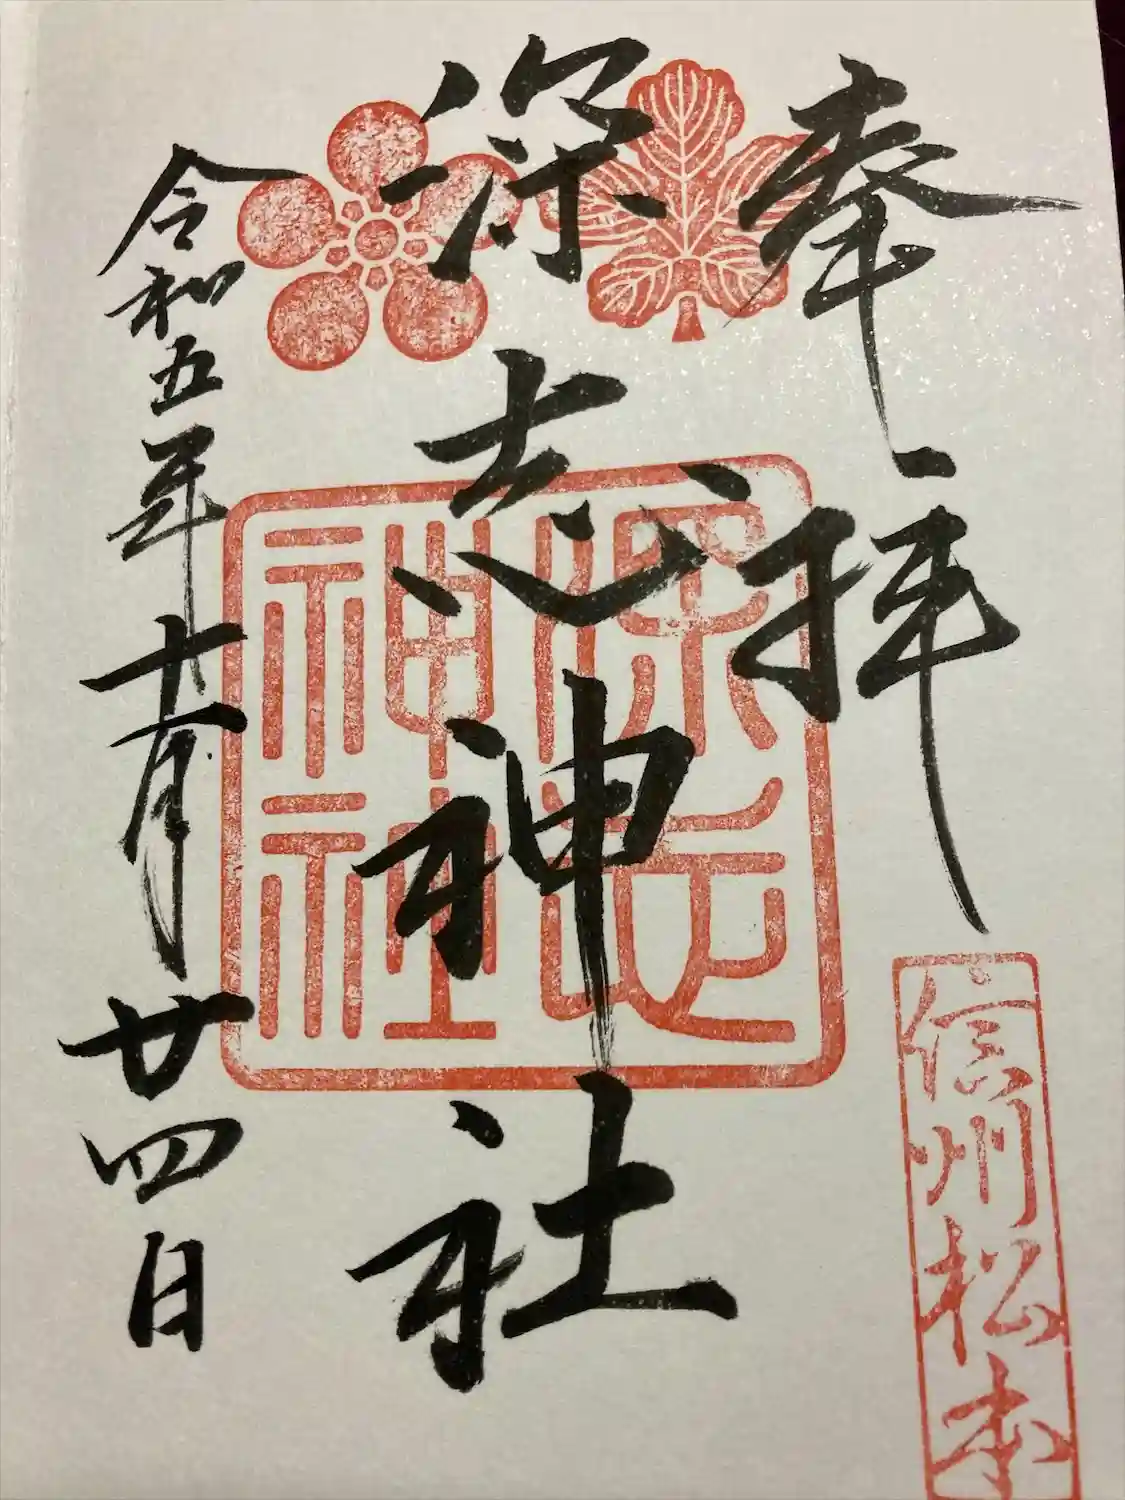 奉拝
信州松本
深志神社
深志神社
令和五年十一月廿四日